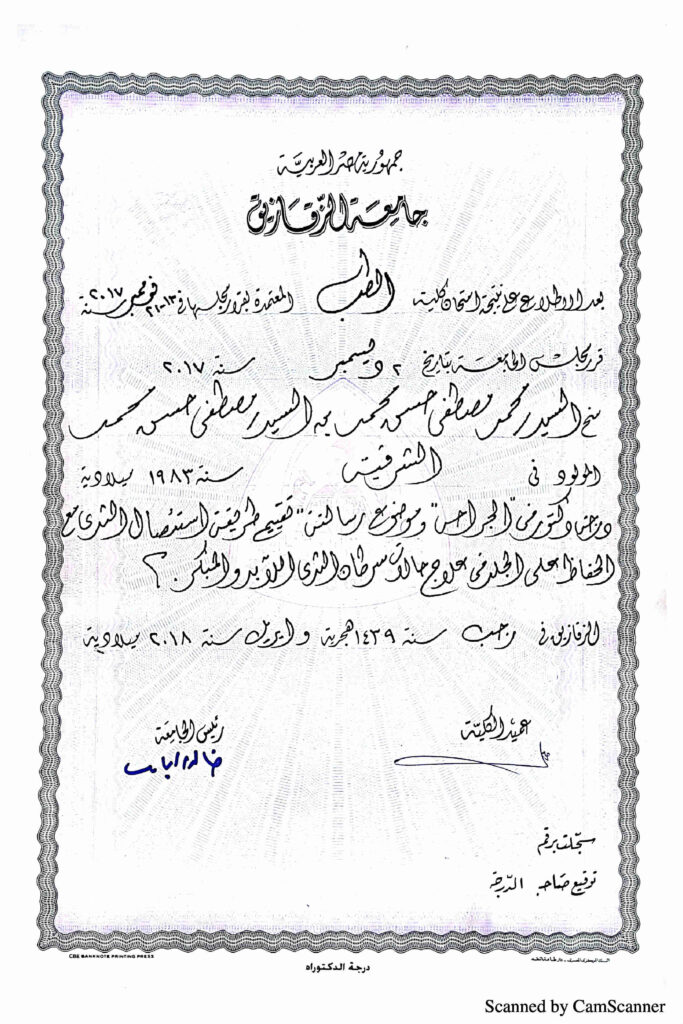 جمهورية مصر العربية
جامعة الزقازيق
بعد الاطلاع على نتيجة امتحان كلية الطب المعتمدة بقرار مجلسها في نوفمبر سنة ٢٠١٧
قرر مجلس الجامعة بتاريخ ٢ ديسمبر سنة ٢٠١٧
منح السيد / محمد مصطفى حسن محمد ابن السيد / مصطفى حسن محمد
المولود في الشرقية سنة ١٩٨٣ ميلادية
درجة دكتور في "الجراحة" وموضوع رسالته "تقييم طريقة استئصال الثدي مع
الحفاظ على الجلد في علاج حالات سرطان الثدي والمبكر. ؟
الزقازيق في رجب سنة ١٤٣٩ هجرية و ابريل سنة ٢٠١٨ ميلادية
عميد الكلية رئيس الجامعة
سجلت برقم
توقيع صاحب الدرجة
CBE BANKNOTE PRINTING PRESS
درجة الدكتوراه
Scanned by CamScanner